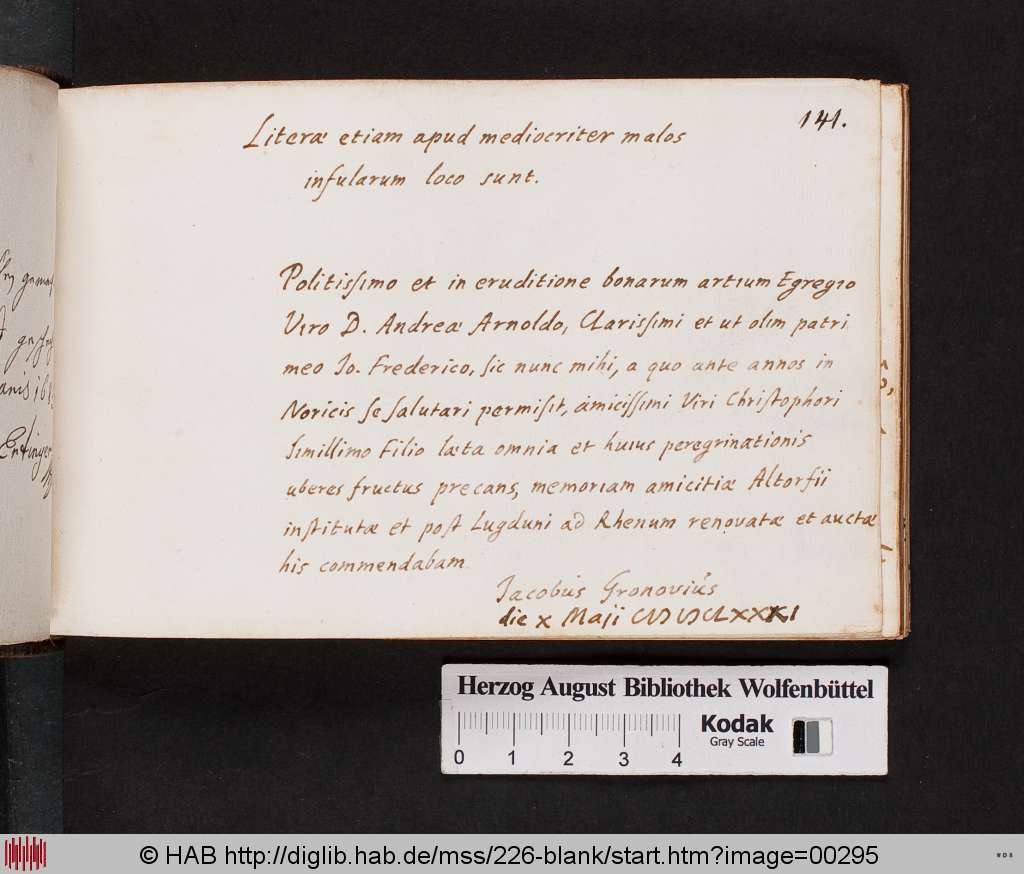 141.
Literæ etiam apud mediocriter malos
infularum loco sunt.
Politissimo et in eruditione bonarum artium Egregio
Viro D. Andreæ Arnoldo, Clarissimi et ut olim patri
meo Jo. Frederico, sic nunc mihi, a quo ante annos in
Noricis se salutari permisit, amicissimi Viri Christophori
Simillimo Filio læta omnia et huius peregrinationis
uberes fructus precans, memoriam amicitiæ Altorfii
institutæ et post Lugduni ad Rhenum renovatæ et auctæ
his commendabam
Jacobus Gronovius
die x Maji CIƆ IƆCLXXXI
Herzog August Bibliothek Wolfenbüttel
0 1 2 3 4
Kodak
Gray Scale
© HAB http://diglib.hab.de/mss/226-blank/start.htm?image=00295
WDB